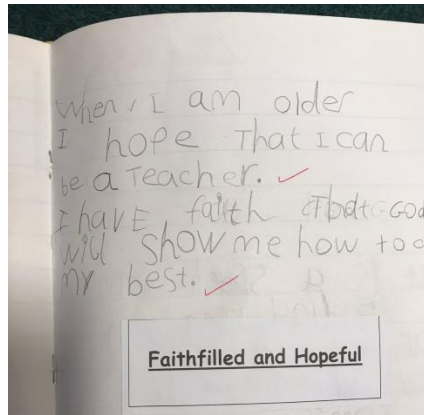 When I am older
I hope That I can
be a Teacher.
I havE faith That GOD
will SHOW me how to
my best.
Faithfilled and Hopeful